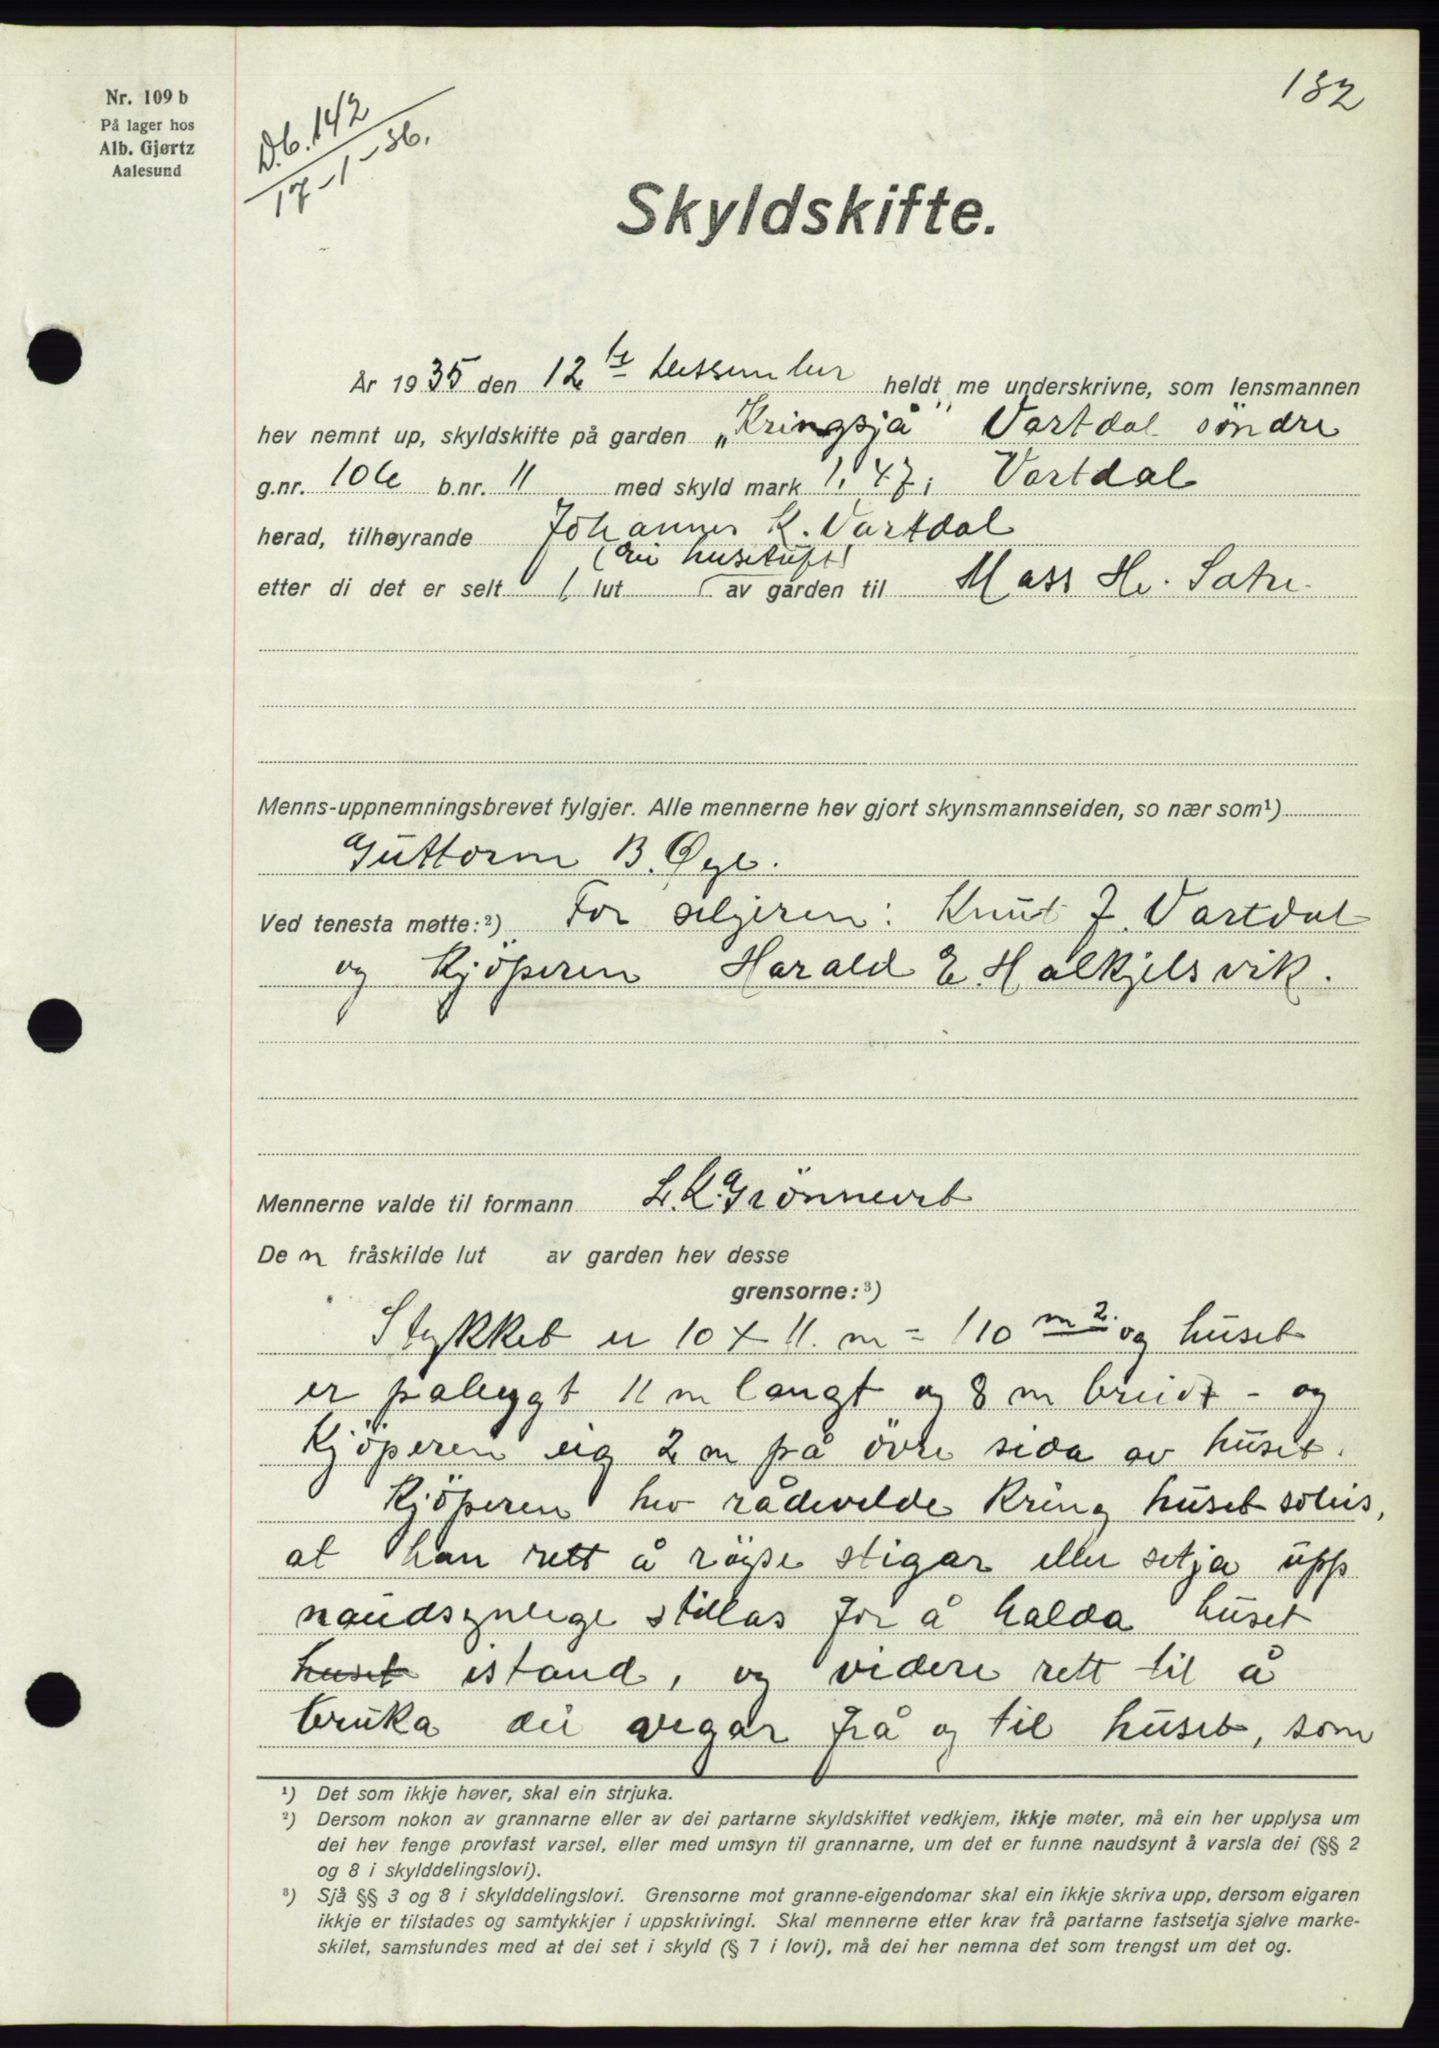 132
Nr. 109 b
På lager hos
Alb. Gjørtz
Aalesund
D.b. 142
17-1-36.
Skyldskifte.
År 1935 den 12te dessember heldt me underskrivne, som lensmannen
hev nemnt up, skyldskifte på garden „Kringsjå" Vartdal söndre
g.nr. 106 b.nr. 11 med skyld mark 1,47 i Vartdal
herad, tilhøyrande Johannes K. Vartdal
(ein husetuft)
etter di det er selt 1 lut av garden til Mass H. Satre.
Menns-uppnemningsbrevet fylgjer. Alle mennerne hev gjort skynsmannseiden, so nær som¹)
Guttorm B. Øye.
Ved tenesta møtte:²) For seljeren: Knut J. Vartdal
og Kjöperen Harald E. Halkjelsvik.
Mennerne valde til formann L. K. Grönnevet
De n fråskilde lut av garden hev desse
grensorne:³)
Stykket er 10 x 11. m = 110 m2. og huset
er påbygt 11 m langt og 8 m breidt - og
Kjöperen eig 2 m på övre sida av huset.
Kjöperen hev rådevelde Kring huset soleis,
at han rett å röise stigar eller setja upp
naudsynlege stillas for å halda huset
huset istand, og videre rett til å
bruka dei vegar frå og til huset, som
¹) Det som ikkje høver, skal ein strjuka.
²) Dersom nokon av grannarne eller av dei partarne skyldskiftet vedkjem, ikkje møter, må ein her upplysa um
dei hev fenge provfast varsel, eller med umsyn til grannarne, um det er funne naudsynt å varsla dei (§§ 2
og 8 i skylddelingslovi).
³) Sjå §§ 3 og 8 i skylddelingslovi. Grensorne mot granne-eigendomar skal ein ikkje skriva upp, dersom eigaren
ikkje er tilstades og samtykkjer i uppskrivingi. Skal mennerne etter krav frå partarne fastsetja sjølve marke-
skilet, samstundes med at dei set i skyld (§ 7 i lovi), må dei her nemna det som trengst um det og.